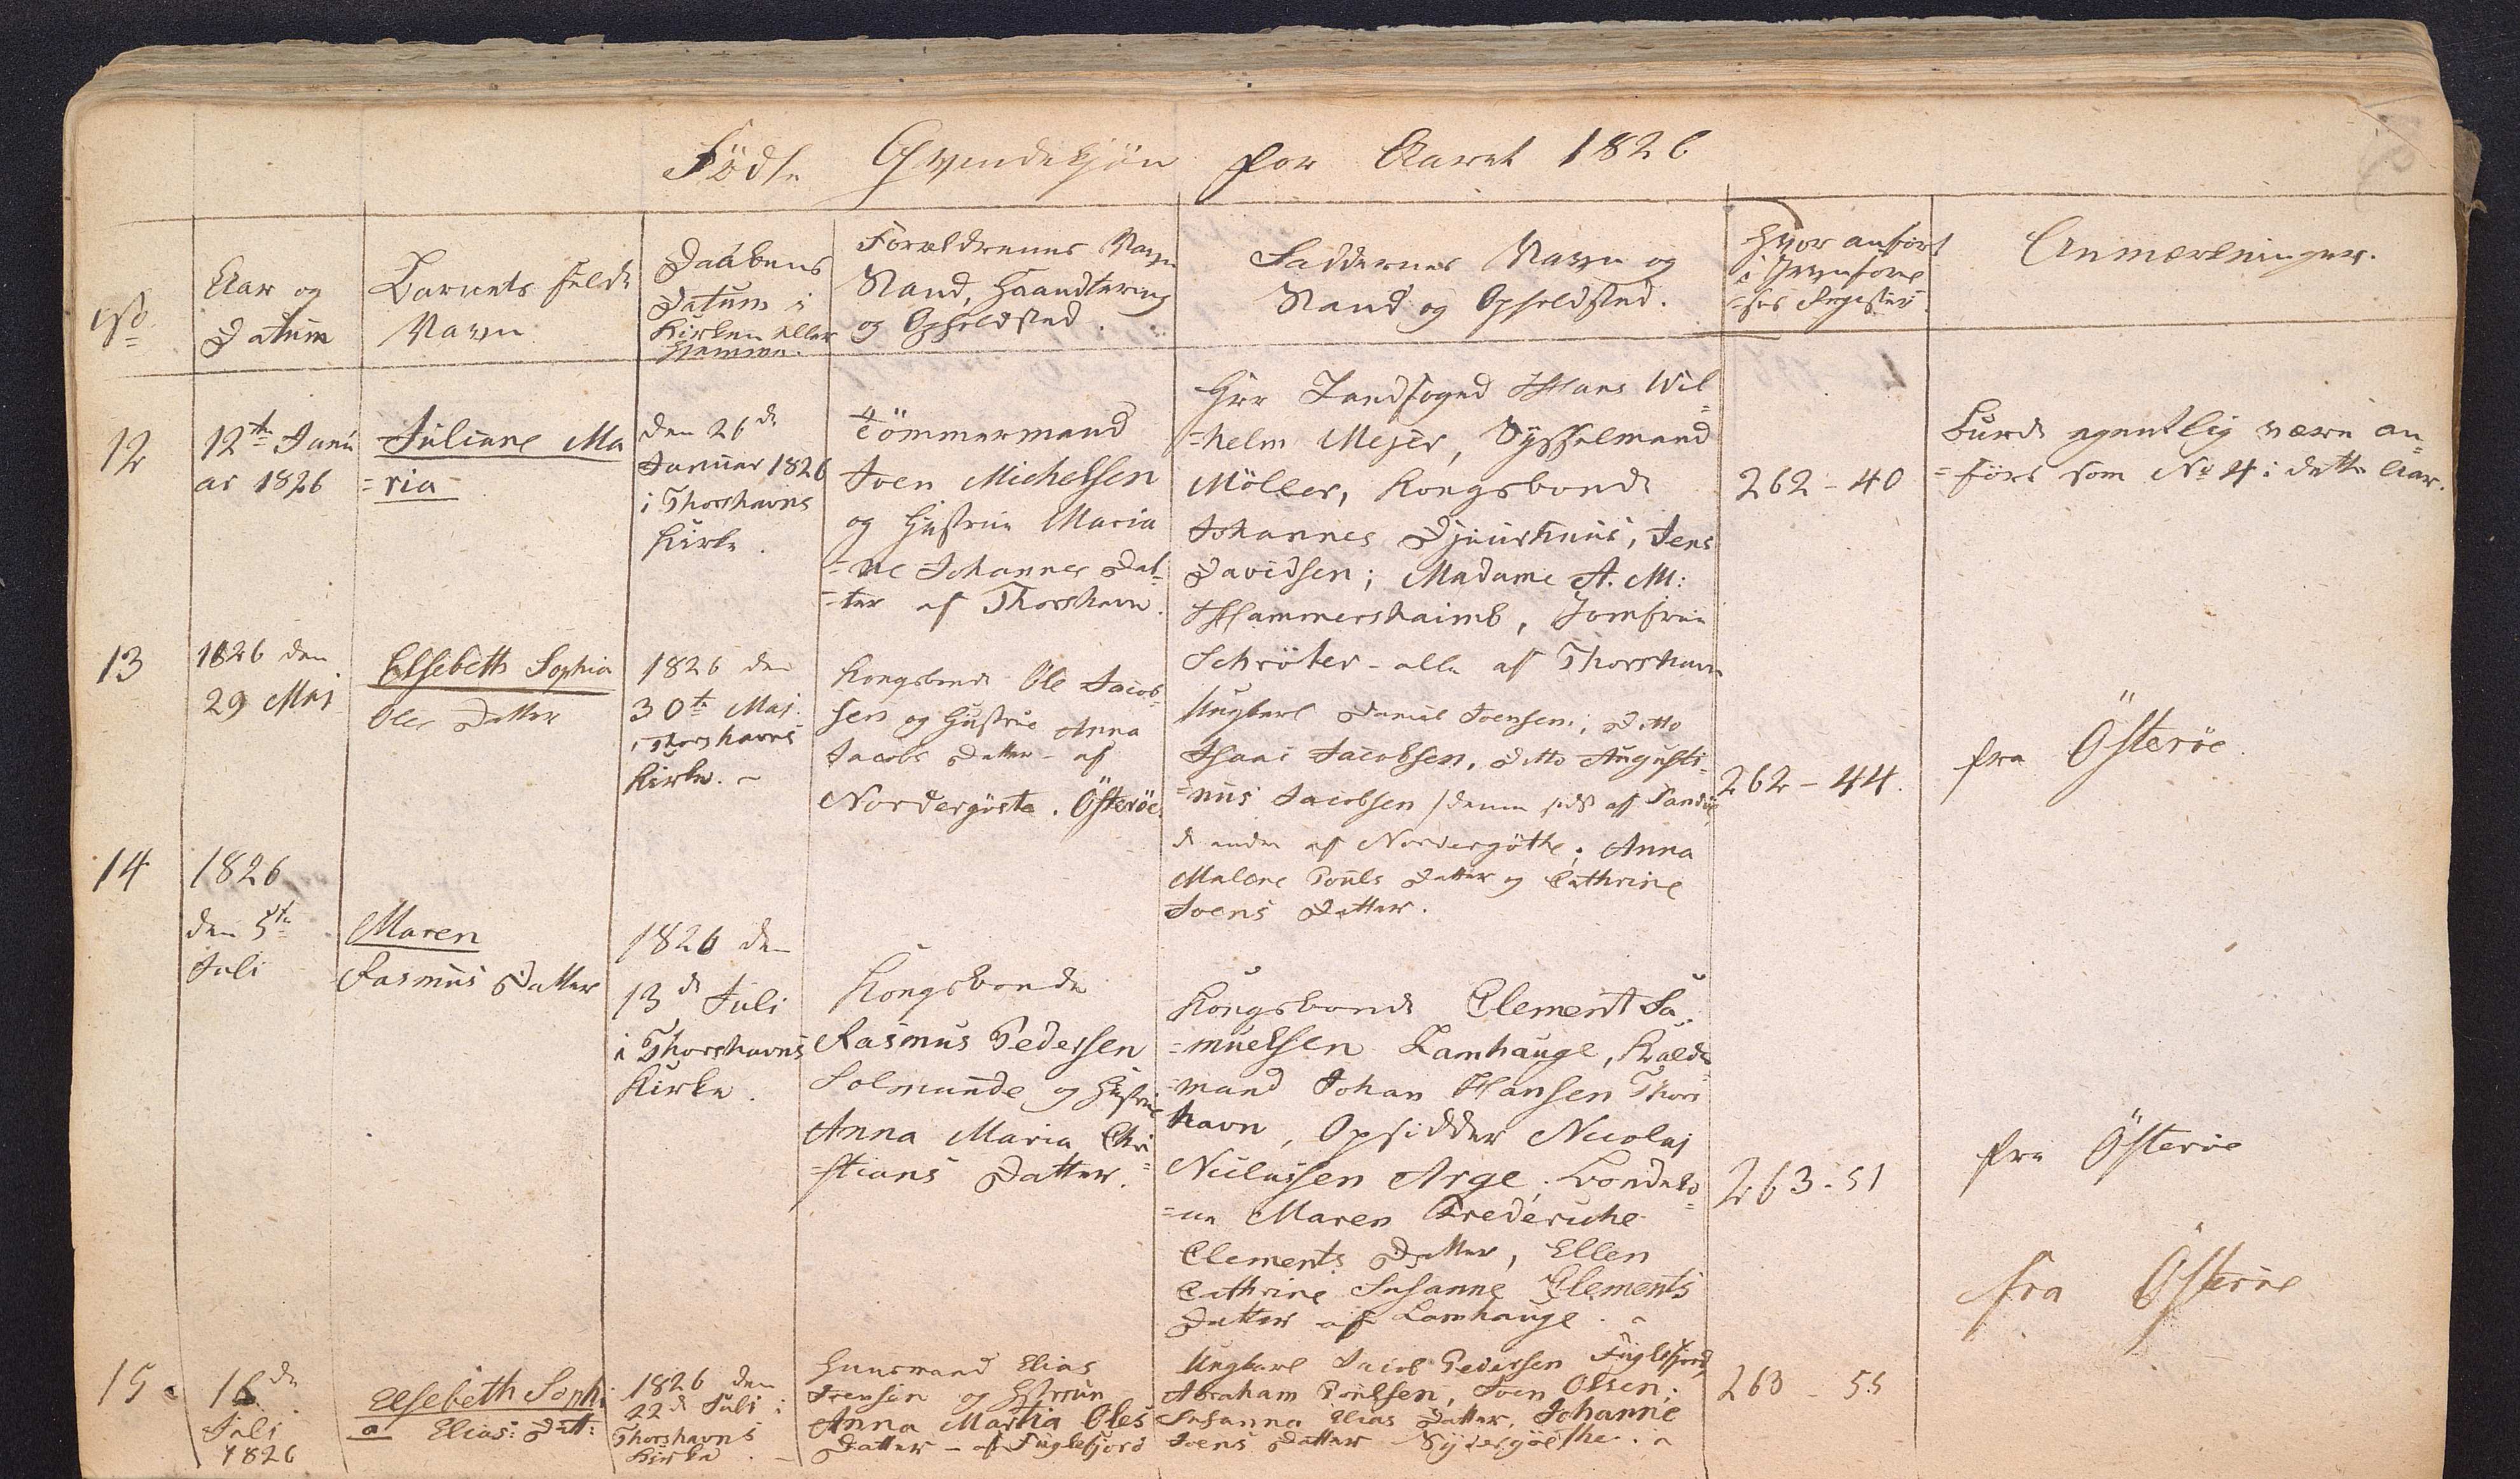 Födte Qvindekjön for Aaret 1826
No
Aar og
Datum
Barnets fulde
Navn
Daabens
Datum i
Kirken eller
Hjemme.
Forældrenes Navn
Stand, Haandtering
og Opholdsted.
Faddernes Navn og
Stand og Opholdsted.
Hvor anfört
i Jevnföre
=ses Register.
Anmærkninger.
12
12te Janu
ar 1826
Juliane Ma
=ria
den 26de
Januar 1826
i Thorshavns
Kirke.
Tömmermand
Joen Michelsen
og Hustrue Maria
=ne Johannes Dat=
=ter af Thorshavn.
Hrr Landfoged Hans Wil=
=helm Mejer, Sysselmand
Möller, Kongsbonde
Johannes Djurhuus, Jens
Davidsen; Madame A. M:
Hammershaimb, Jomfrue
Schröter - alle af Thorshavn
262 - 40
Burde egentlig være an=
=fört som No 4 i dette Aar.
13
1826 den
29 Maj
Elsebeth Sophia
Oles Datter
1826 den
30te Maj.
i Thorshavns
Kirke. -
Kongsbonde Ole Jacob=
sen og Hustrue Anna
Jacobs Datter - af
Nordergöte. Österöe.
Ungkarl Daniel Joensen; Ditto
Isaac Jacobsen, Ditto Augusti=
=nus Jacobsen /denne sidst af Sandöe
de andre af Nordergöthe; Anna
Malene Pouls Datter og Cathrine
Joens Datter.
262 - 44.
fra Österöe.
14
1826
den 5te
Juli
Maren
Rasmus Datter
1826 den
13de Juli
i Thorshavns
Kirke.
Kongsbonde
Rasmus Pedersen
Solmunde og Hustrue
Anna Maria Chri=
=stians Datter.
Kongsbonde Clement Sa=
=muelsen Lamhauge,
=mand Johan Hansen Thors
havn, Opsidder Nicolaj
Niclassen Arge. Bondeko=
=ne Maren Frederiche
Clements Datter, Ellen
Cathrine Susanne Clements
Datter af Lamhauge. -
263 - 51
fra Österöe
15.
16de
Juli
1826
Elsebeth Sophi
a Elias: Datt:
1826 den
22de Juli i
Thorshavns
Kirke. -
Huusmand Elias
Joensen og Hustrue
Anna Martha Oles
Datter - af Fuglefjord
Ungkarl Jacob Pedersen Fuglefjord,
Abraham Poulsen, Joen Olsen;
Susanna Elias Datter, Johanne
Joens Datter Sydergöethe. -
263 - 55
fra Österöe